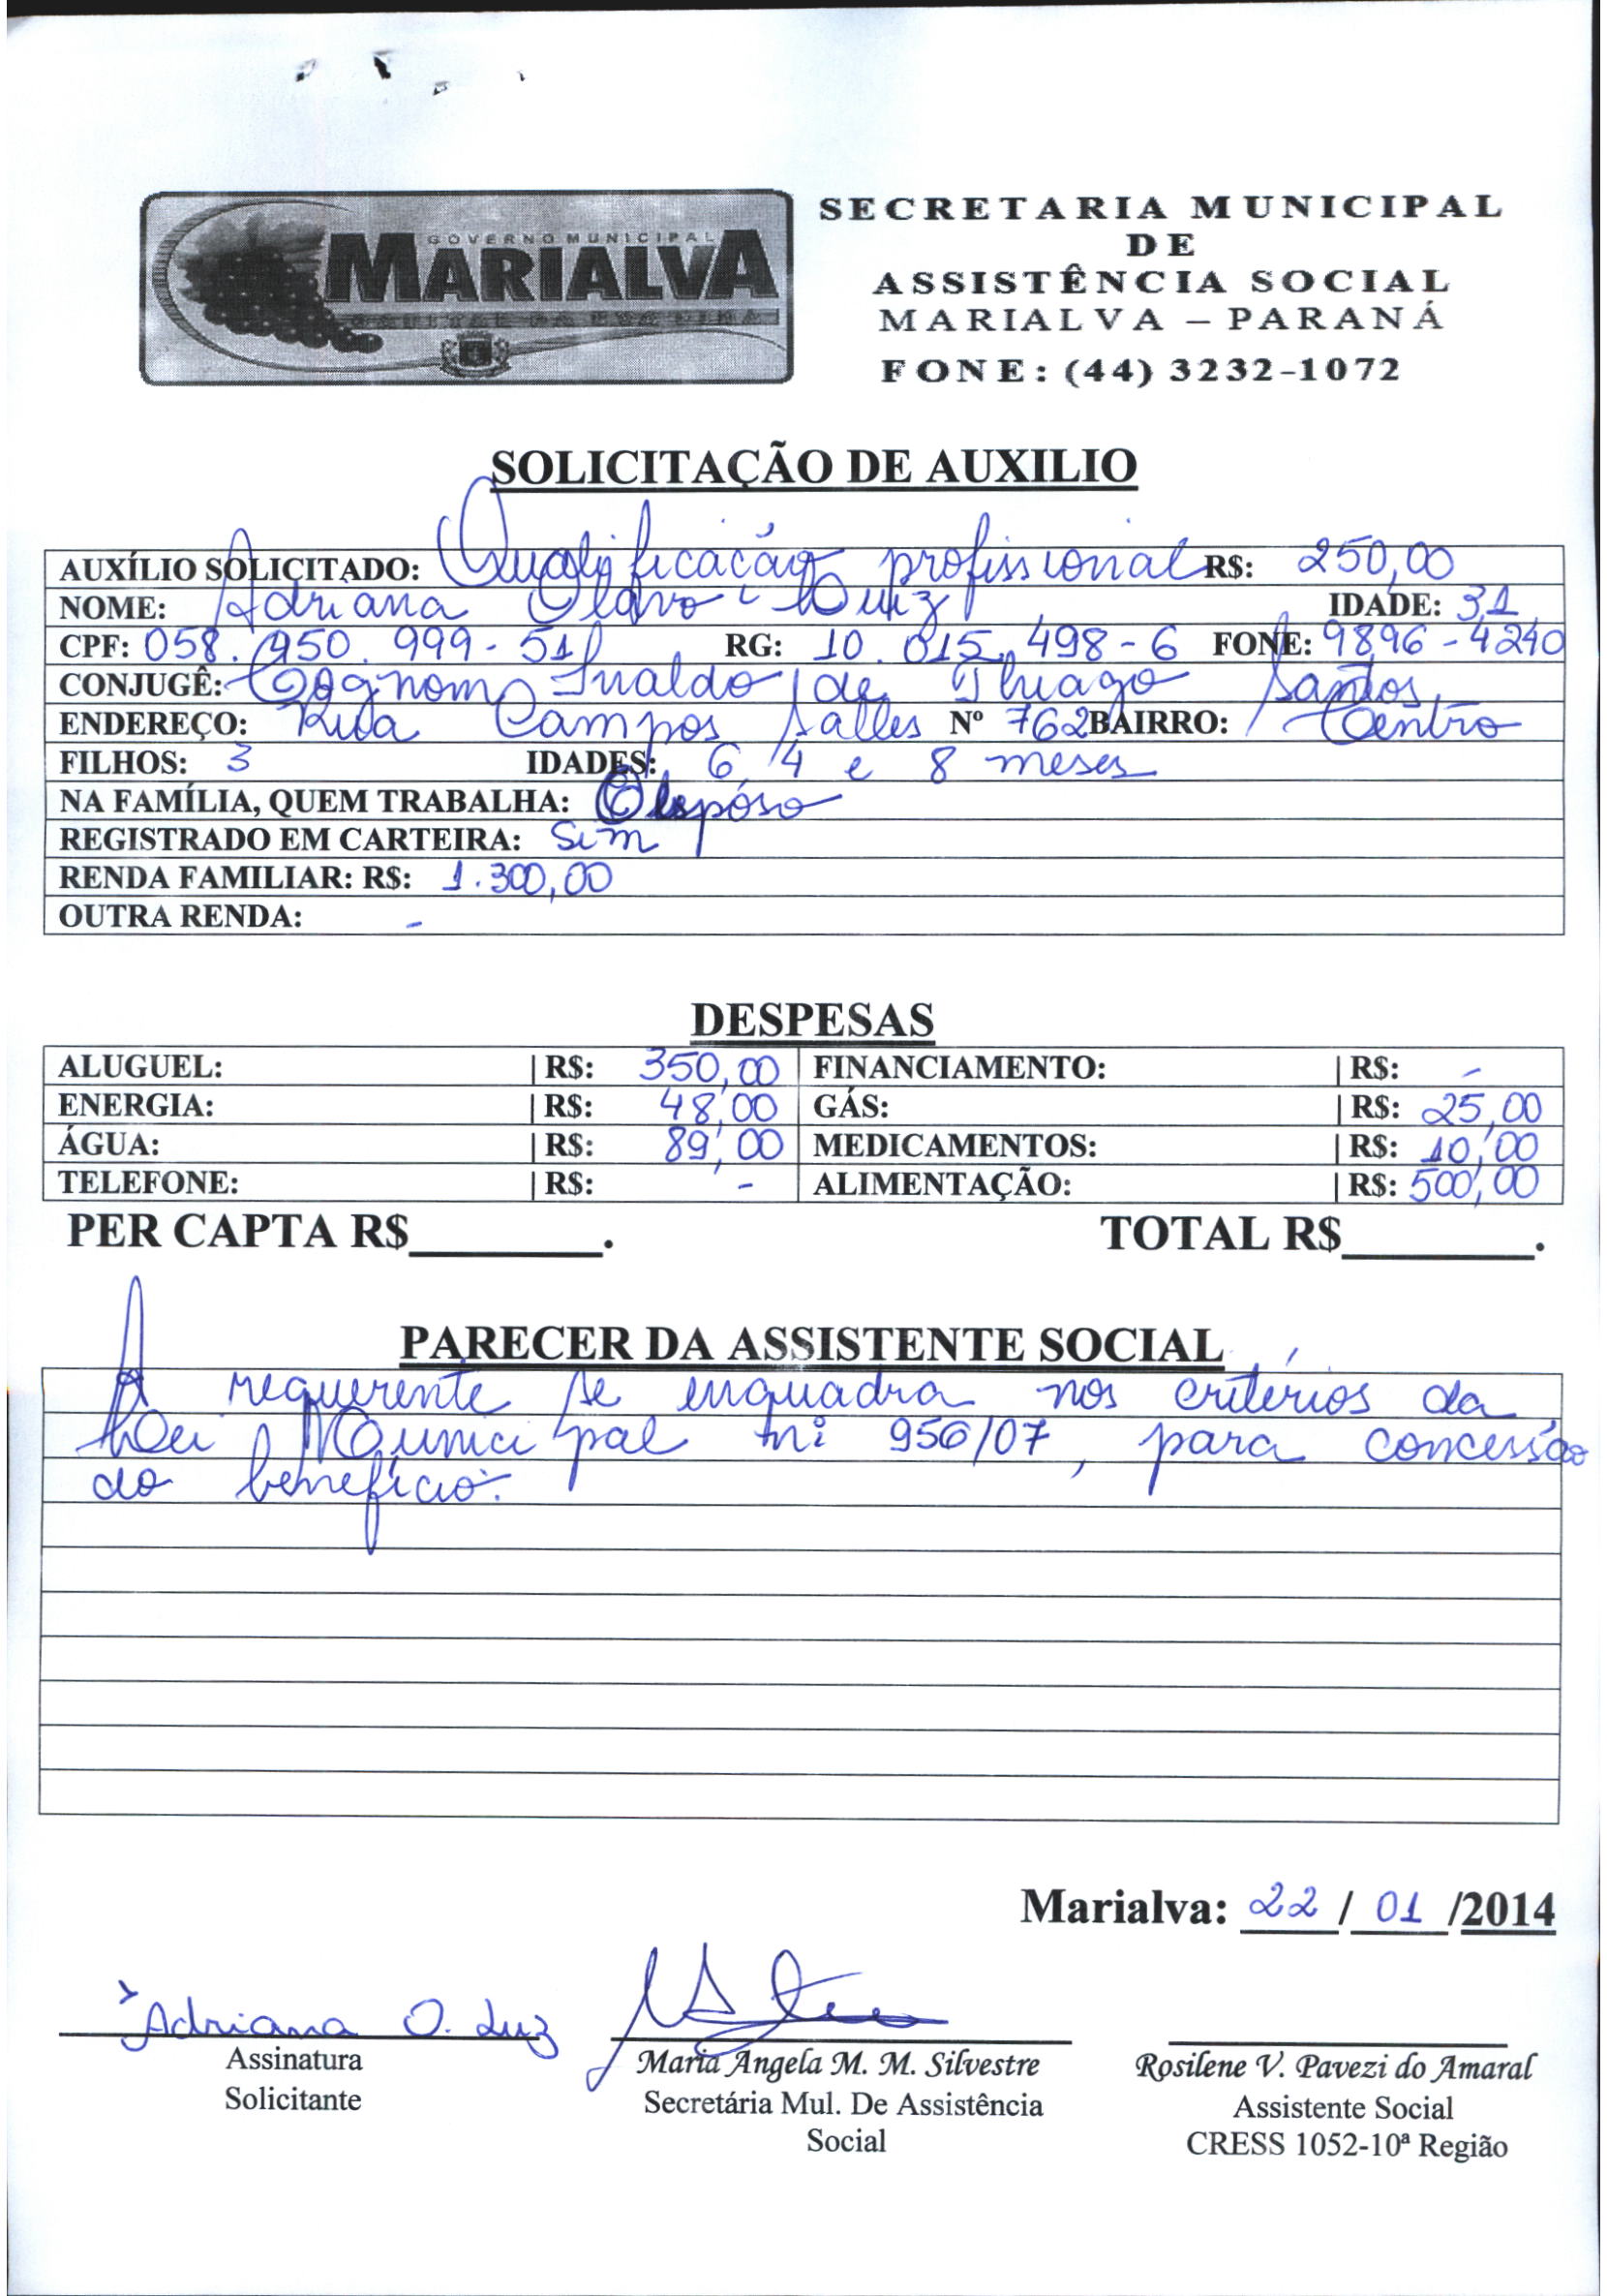 GOVERNO MUNICIPAL
MARIALVA
SECRETARIA MUNICIPAL
DE
ASSISTÊNCIA SOCIAL
MARIALVA – PARANÁ
FONE: (44) 3232-1072
SOLICITAÇÃO DE AUXILIO
AUXÍLIO SOLICITADO: Qualificação profissional R$: 250,00
NOME: Adriana IDADE: 31
CPF: 058.950.999-51 RG: 10.015.498-6 FONE: 9896-4240
CONJUGÊ: de Thiago Santos
ENDEREÇO: Rua Campos Salles Nº 762 BAIRRO: Centro
FILHOS: 3 IDADES: 6, 4 e 8 meses
NA FAMÍLIA, QUEM TRABALHA: O Esposo
REGISTRADO EM CARTEIRA: Sim
RENDA FAMILIAR: R$: 1.300,00
OUTRA RENDA: -
DESPESAS
ALUGUEL: | R$: 350,00 FINANCIAMENTO: | R$: -
ENERGIA: | R$: 48,00 GÁS: | R$: 25,00
ÁGUA: | R$: 89,00 MEDICAMENTOS: | R$: 10,00
TELEFONE: | R$: - ALIMENTAÇÃO: | R$: 500,00
PER CAPTA R$________. TOTAL R$________.
PARECER DA ASSISTENTE SOCIAL
A requerente se enquadra nos critérios da
Lei Municipal nº 956/07, para concessão
do benefício.
Marialva: 22 / 01 /2014
Adriana O. Luz
Assinatura
Solicitante
Maria Angela M. M. Silvestre
Secretária Mul. De Assistência
Social
Rosilene V. Pavezi do Amaral
Assistente Social
CRESS 1052-10ª Região